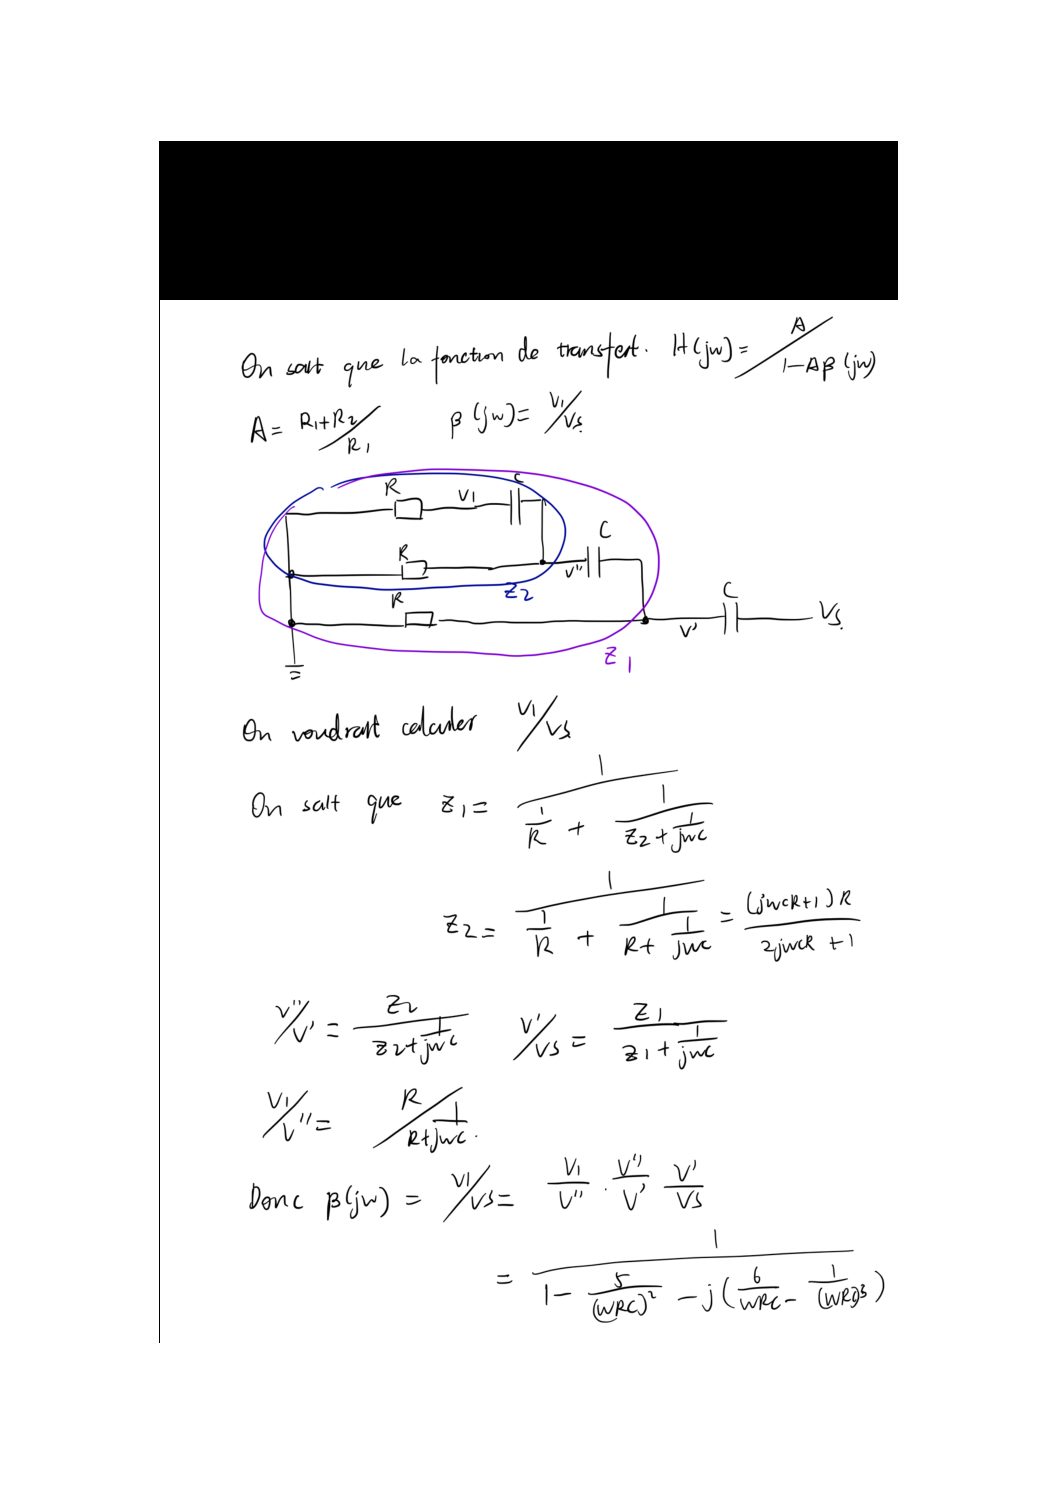 On sait que la fonction de transfert. H(jw)= A/1-Aβ(jw)
A= R1+R2/R1 β(jw)= V1/Vs.
R V1 C
R V'' C
Z2
R V' C Vs.
Z1
On voudrait calculer V1/Vs
On sait que Z1= 1/(1/R + 1/(Z2+1/jwc))
Z2= 1/(1/R + 1/(R+1/jwc)) = (jwcR+1)R/(2jwcR+1)
V''/V' = Z2/(Z2+1/jwc) V'/Vs = Z1/(Z1+1/jwc)
V1/V'' = R/(R+1/jwc).
Donc β(jw) = V1/Vs = V1/V'' · V''/V' V'/Vs
= 1/(1- 5/(WRC)² -j(6/WRC - 1/(WRC)³))